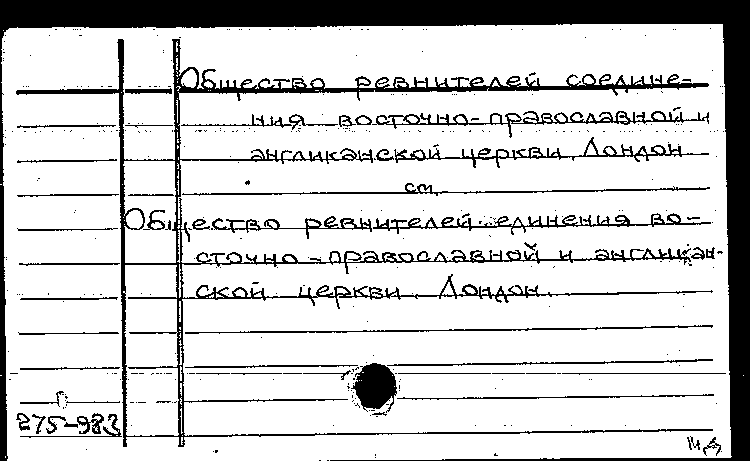 Общество ревнителей соедине-
ния восточно-православной и
англиканской церкви. Лондон
см.
Общество ревнителей единения во-
сточно-православной и англикан-
ской церкви. Лондон.
275-983